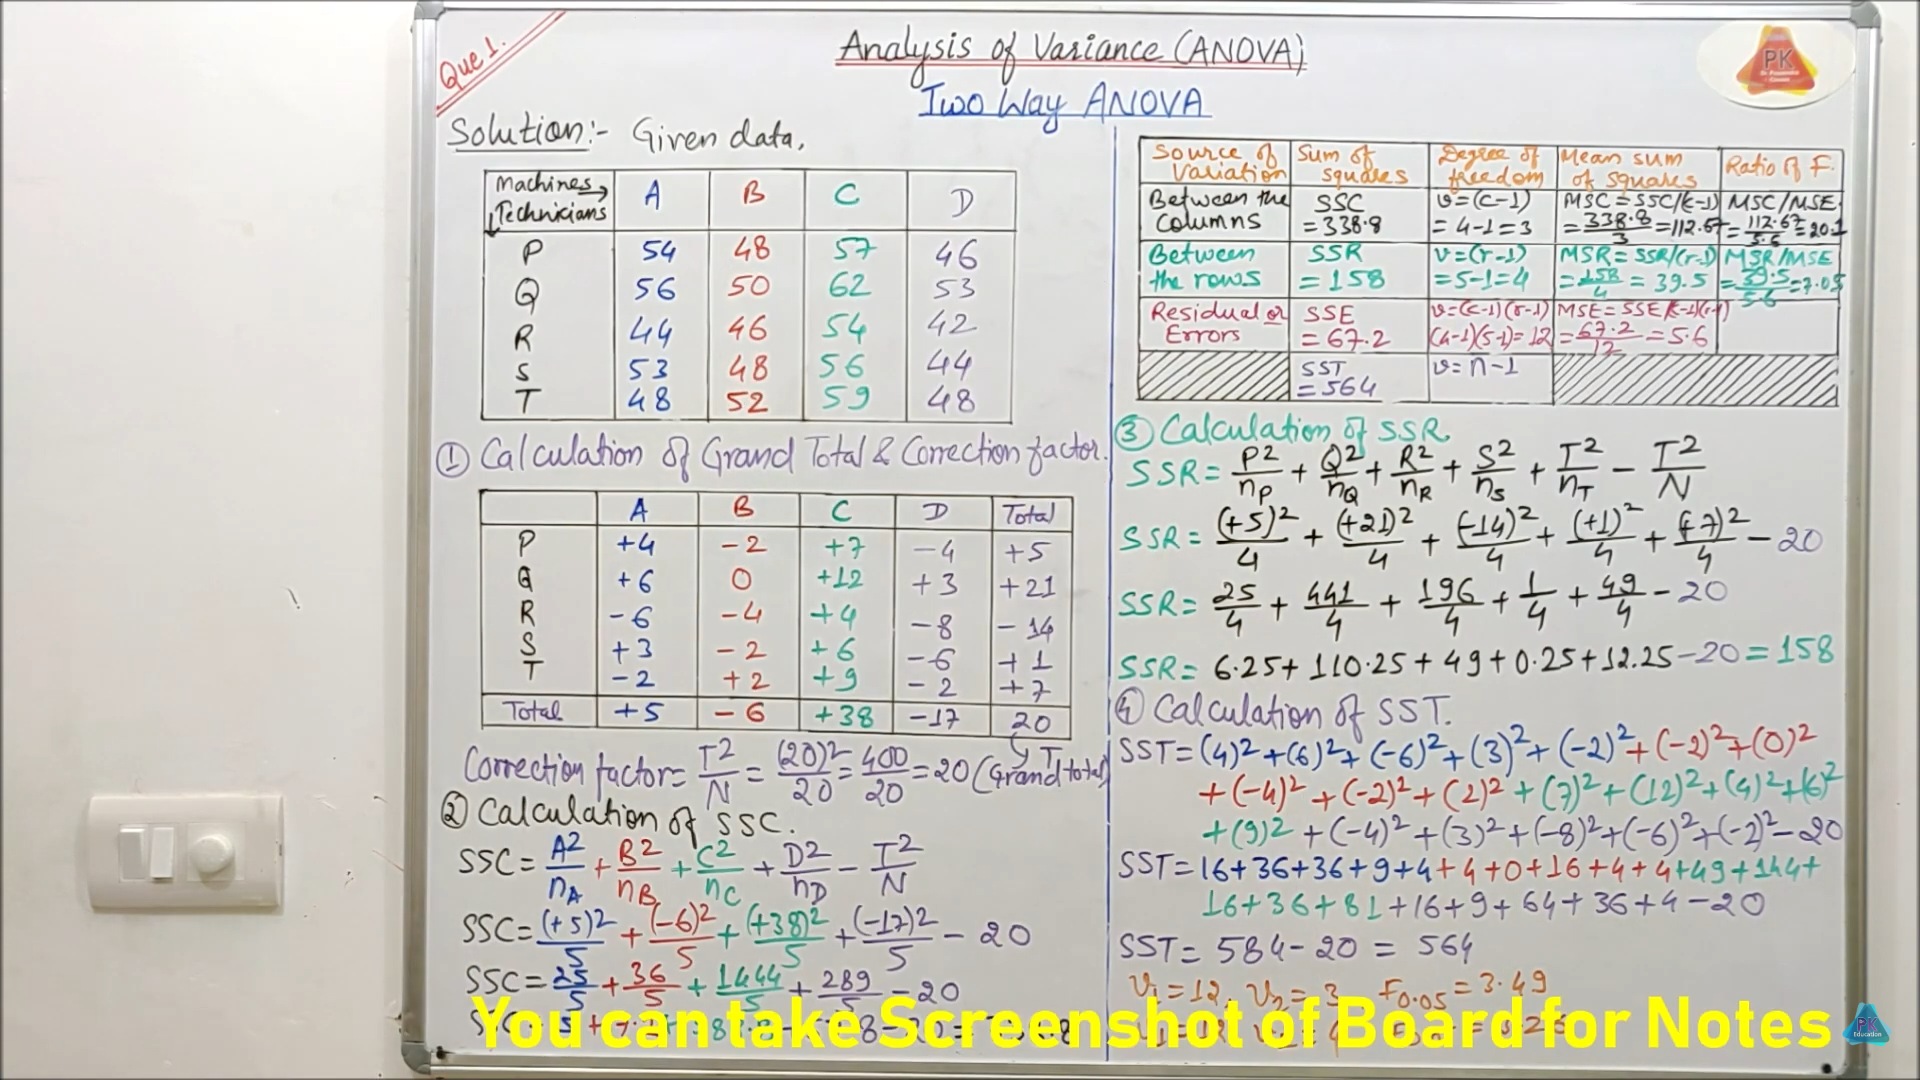 Que 1.
Analysis of Variance (ANOVA)
Two Way ANOVA
PK
Solution:- Given data,
Machines → A B C D
↓ Technicians
P 54 48 57 46
Q 56 50 62 53
R 44 46 54 42
S 53 48 56 44
T 48 52 59 48
① Calculation of Grand Total & Correction factor.
A B C D Total
P +4 -2 +7 -4 +5
Q +6 0 +12 +3 +21
R -6 -4 +4 -8 -14
S +3 -2 +6 -6 +1
T -2 +2 +9 -2 +7
Total +5 -6 +38 -17 20
Correction factor = T²/N = (20)²/20 = 400/20 = 20 T (Grand total)
② Calculation of SSC.
SSC = A²/nA + B²/nB + C²/nC + D²/nD - T²/N
SSC = (+5)²/5 + (-6)²/5 + (+38)²/5 + (-17)²/5 - 20
SSC = 25/5 + 36/5 + 1444/5 + 289/5 - 20
Source of Variation Sum of squares Degree of freedom Mean sum of squares Ratio of F.
Between the columns SSC = 338.8 v = (c-1) = 4-1 = 3 MSC = SSC/(c-1) = 338.8/3 = 112.67 MSC/MSE = 112.67/5.6 = 20.1
Between the rows SSR = 158 v = (r-1) = 5-1 = 4 MSR = SSR/(r-1) = 158/4 = 39.5 MSR/MSE = 39.5/5.6 = 7.05
Residual or Errors SSE = 67.2 v = (c-1)(r-1) (4-1)(5-1) = 12 MSE = SSE/(c-1)(r-1) = 67.2/12 = 5.6
SST = 564 v = n-1
③ Calculation of SSR.
SSR = P²/nP + Q²/nQ + R²/nR + S²/nS + T²/nT - T²/N
SSR = (+5)²/4 + (+21)²/4 + (-14)²/4 + (+1)²/4 + (+7)²/4 - 20
SSR = 25/4 + 441/4 + 196/4 + 1/4 + 49/4 - 20
SSR = 6.25 + 110.25 + 49 + 0.25 + 12.25 - 20 = 158
④ Calculation of SST.
SST = (4)² + (6)² + (-6)² + (3)² + (-2)² + (-2)² + (0)²
+ (-4)² + (-2)² + (2)² + (7)² + (12)² + (4)² + (6)²
+ (9)² + (-4)² + (3)² + (-8)² + (-6)² + (-2)² - 20
SST = 16+36+36+9+4+4+0+16+4+4+49+144+
16+36+81+16+9+64+36+4-20
SST = 584 - 20 = 564
v₁ = 12, v₂ = 3 F0.05 = 3.49
You can take Screenshot of Board for Notes
PK
Education